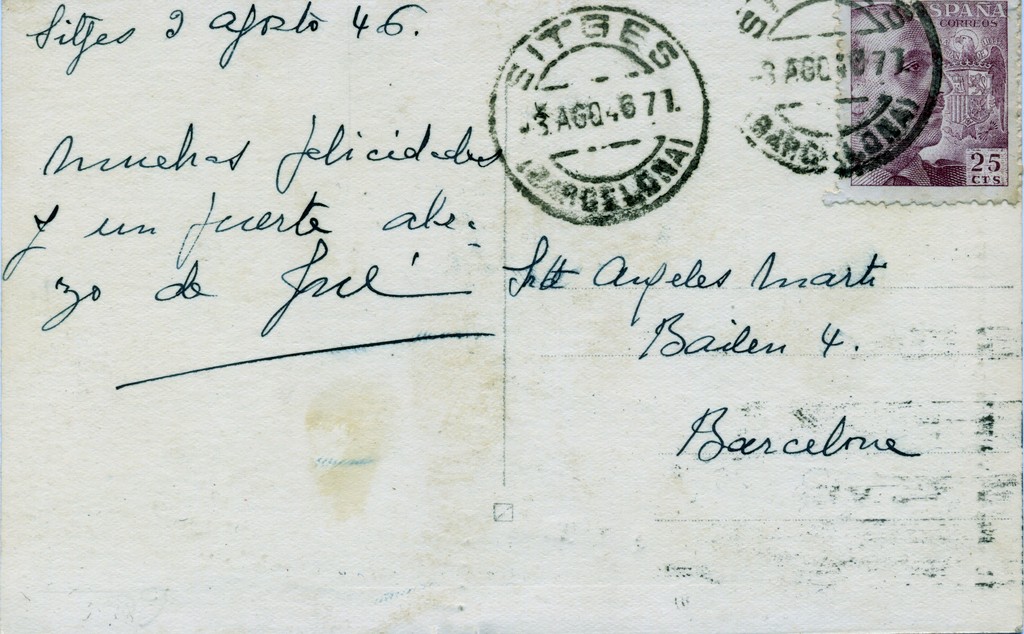 Sitges 2 agosto 46.
Muchas felicidades
y un fuerte abra-
zo de José
SITGES
-3.AGO.46 7T.
(BARCELONA)
-3 AGO 46 7T.
(BARCELONA)
ESPAÑA
CORREOS
25
CTS
Srta Angeles Marti
Bailen 4.
Barcelona